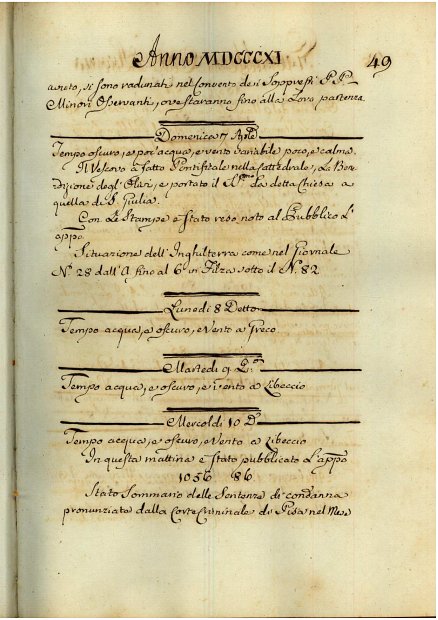 Anno MDCCCXI 49
avuto, si sono radunati nel Convento de i Soppressi PP
Minori Osservanti, ove staranno fino alla Loro partenza
Domenica 7 Aprile
Tempo oscuro, e poc'acqua, e vento variabile poco, e calma.
Il Vescovo à fatto Pontificale nella Cattedrale, La Bene
dizione degl'Olivi, e portato il SS.mo da detta Chiesa a
quella di S. Giulia.
Con Le Stampe è stato reso noto al Pubblico L'
appo
Situazione dell'Inghilterra come nel Giornale
No. 28 dall'A fino al 6 in Filza sotto il No. 82
Lunedi 8 Detto
Tempo acqua, e oscuro, e Vento a Greco
Martedi 9 Do
Tempo acqua, e oscuro, e vento a Libeccio
Mercoldi 10 Do
Tempo acqua, e oscuro, e Vento a Libeccio
In questa mattina è stato pubblicato L'appo
1056 86
Stato Sommario delle Sentenze di condanna
pronunziate dalla Corte Criminale di Pisa nel Mese